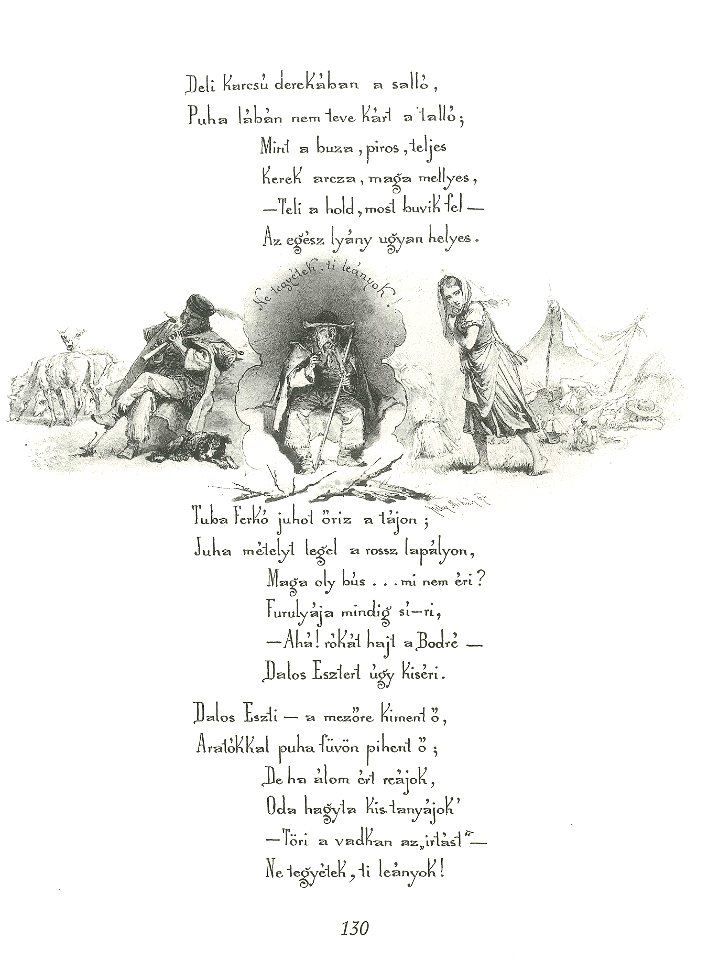 Deli karcsú derekában a salló,
Puha lábán nem teve kárt a talló;
Mint a buza, piros, teljes
Kerek arcza, maga mellyes,
—Teli a hold, most buvik fel—
Az egész lyány ugyan helyes.
Ne tegyétek, ti leányok!
Tuba Ferkó juhot őriz a tájon;
Juha mételyt legel a rossz lapályon,
Maga oly bús . . . mi nem éri?
Furulyája mindig sí—ri,
—Ahá! rókát hajt a Bodré—
Dalos Esztert úgy kiséri.
Dalos Eszti — a mezőre kiment ő,
Aratókkal puha füvön pihent ő;
De ha álom ért reájok,
Oda hagyta kis tanyájok'
—Töri a vadkan az „irtást"—
Ne tegyétek, ti leányok!
130